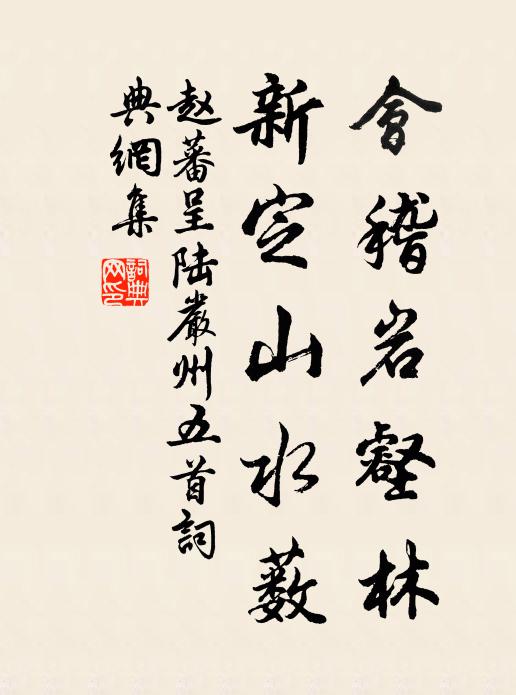 會稽岩壑林
新定山水薮
赵蕃呈陆嚴州五首詞
典網集
詞典
网印